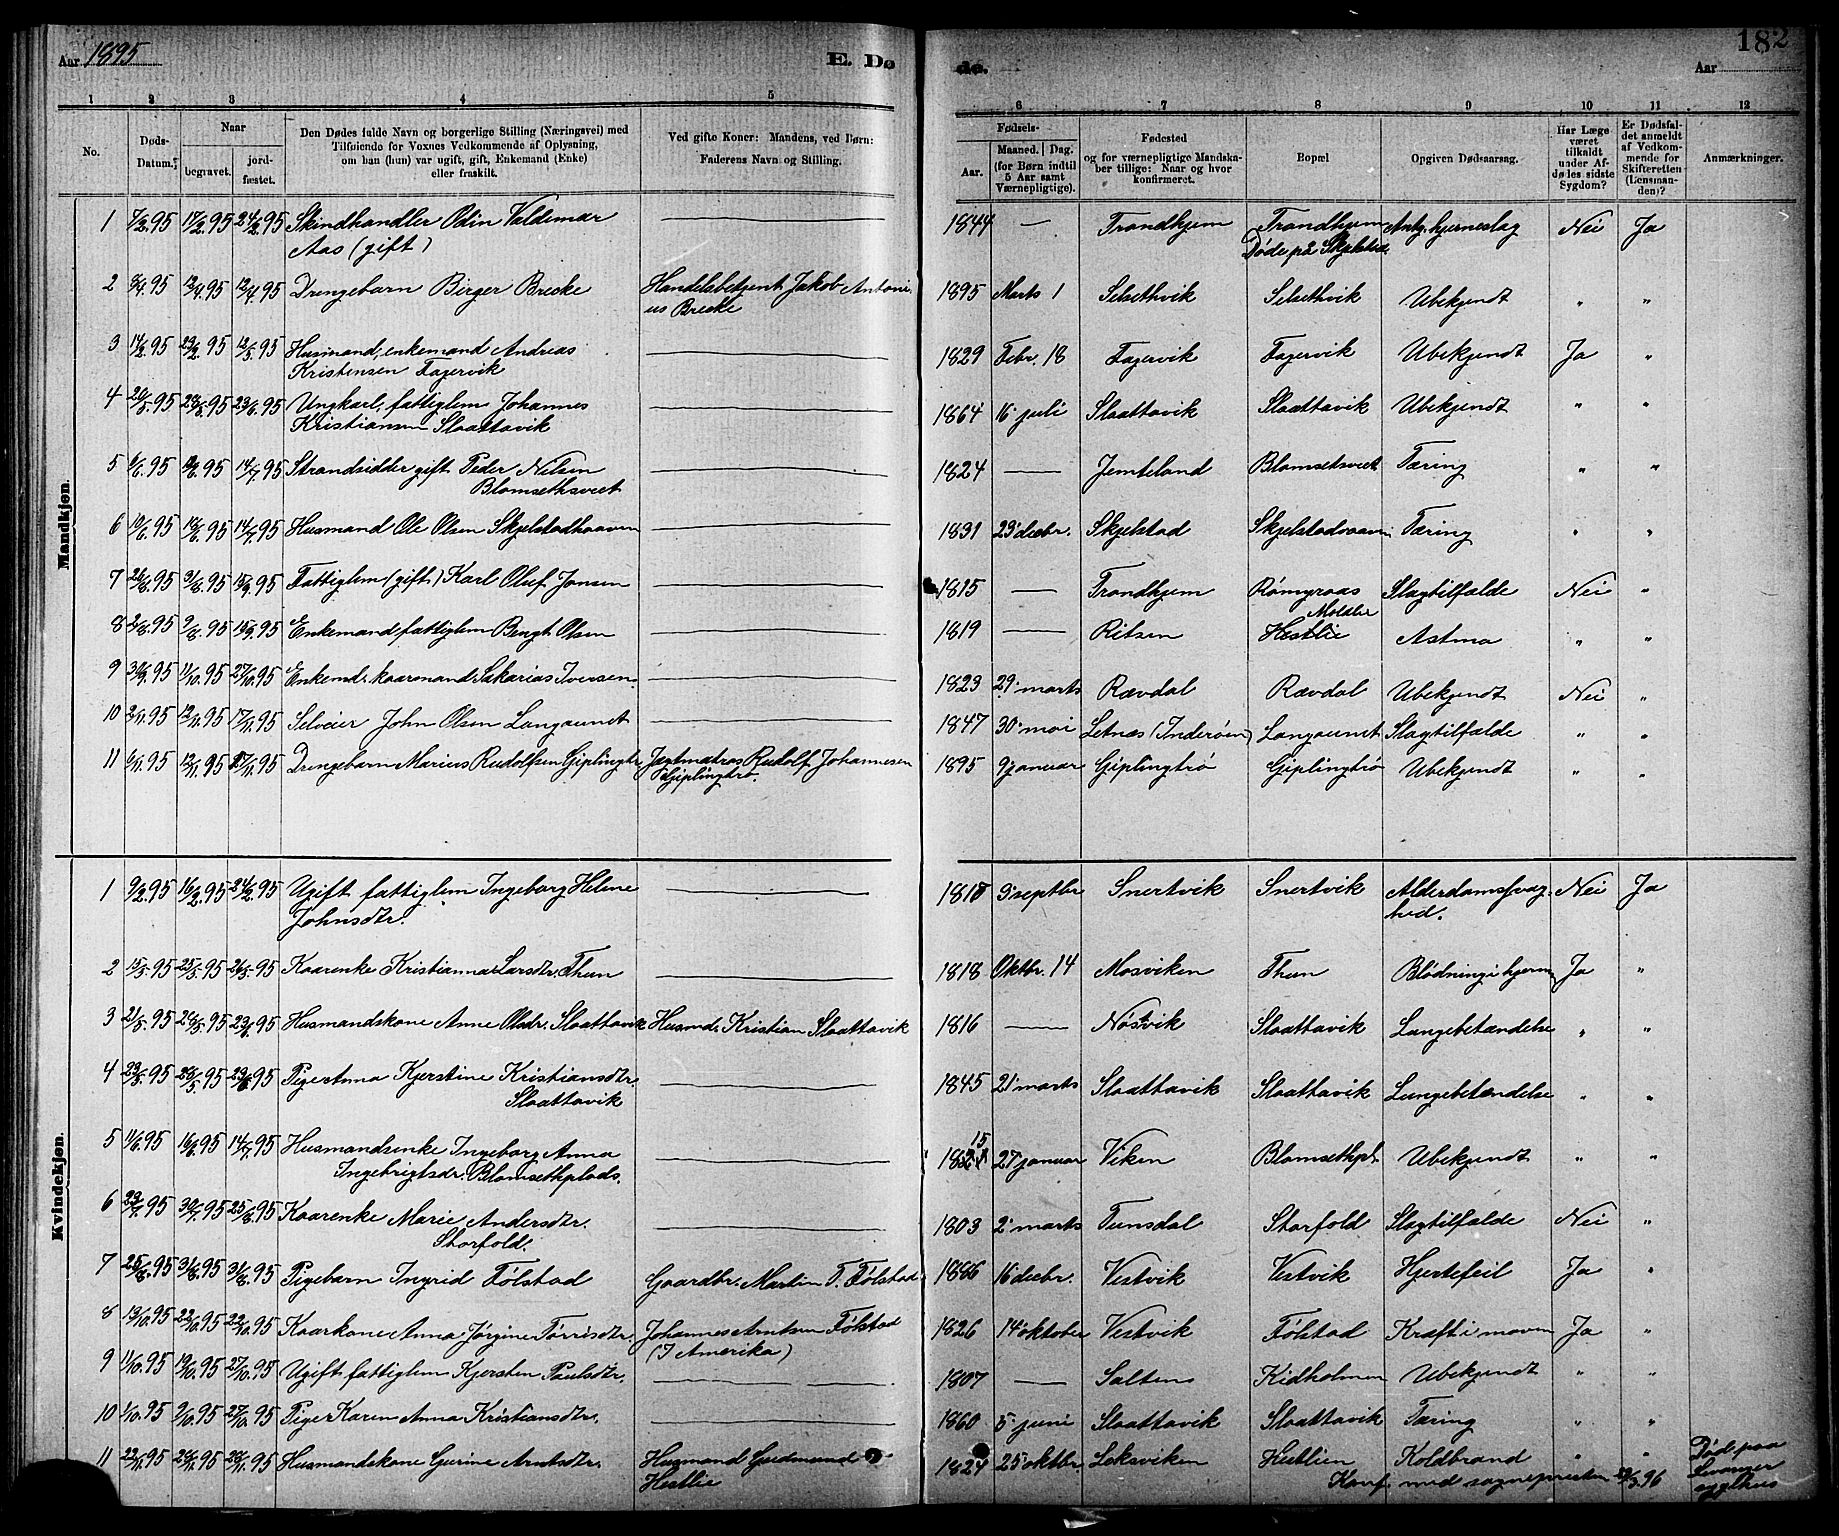 Aar 1895
E. Dø
de.
Aar
182
1 2 3 4 5 6 7 8 9 10 11 12
No.
Døds-Datum.
Naar
begravet.
jord-fæstet.
Den Dødes fulde Navn og borgerlige Stilling (Næringsvei) med
Tilføiende for Voxnes Vedkommende af Oplysning,
om han (hun) var ugift, gift, Enkemand (Enke)
eller fraskilt.
Ved gifte Koner: Mandens, ved Børn:
Faderens Navn og Stilling.
Fødsels-
Aar.
Maaned. Dag.
(for Børn indtil
5 Aar samt
Værnepligtige).
Fødested
og for værnepligtige Mandska-
ber tillige: Naar og hvor
konfirmeret.
Bopæl
Opgiven Dødsaarsag.
Har Læge
været
tilkaldt
under Af-
dødes sidste
Sygdom?
Er Dødsfal-
det anmeldt
af Vedkom-
mende for
Skifteretten
(Lensman-
den)?
Anmærkninger.
Mandkjøn.
1 7/2.95 17/2.95 24/2.95 Skindhandler Odin Valdemar 1844 — Trondhjem Trondhjem Antg. hjerneslag Nei Ja
Aas (gift) Døde på Skjelstad
2 8/4.95 12/4.95 12/4.95 Drengebarn Birger Brecke Handelsbetjent Jakob Antoni- 1895 Marts 1 Selsethvik Selsethvik Ubekjendt " "
us Brecke
3 14/2.95 23/2.95 12/5.95 Husmand, enkemand Andreas 1829 Febr. 18 Fagervik Fagervik Ubekjendt Ja "
Kristensen Fagervik
4 20/5.95 28/5.95 23/6.95 Ungkarl, fattiglem Johannes 1864 16 juli Slaattavik Slaattavik Ubekjendt " "
Kristiansen Slaattavik
5 6/6.95 95 14/7.95 Strandsidder gift Peder Nilsen 1824 — Jemteland Blomsetsveet Tæring " "
Blomsethsveet
6 10/6.95 18/6.95 14/7.95 Husmand Ole Olsen Skjelstadhaaven 1831 23 decbr. Skjelstad Tæring " "
7 26/8.95 31/8.95 15/9.95 Fattiglem (gift) Karl Oluf Jonsen 1815 — Trondhjem Slagtilfælde Nei "
8 2/8.95 9/8.95 15/9.95 Enkemand fattiglem Bengt Olsen 1819 — Ritsen Hestlie Astma " "
9 95 11/10.95 27/10.95 Enkemd. kaarmand Sakarias Iversen 1823 29 marts Rævdal Rævdal Ubekjendt Nei "
10 2/11.95 12/11.95 17/11.95 Selveier John Olsen Langaunet 1847 30 mai Letnæs (Inderøen) Langaunet Slagtilfælde " "
11 6/11.95 12/11.95 17/11.95 Drengebarn Marius Rudolfsen Giplingtr. Jagtmatros Rudolf Johannesen 1895 9 januar Giplingtrø Giplingtrø Ubekjendt " "
Giplingtrø.
Kvindekjøn.
1 9/2.95 16/2.95 24/2.95 Ugift fattiglem Ingeborg Helene 9 septbr Snertvik Snertvik Alderdomssvag- Nei Ja
Johnsdtr. hed.
2 15/5.95 25/5.95 26/5.95 Kaarenke Kristianna Larsdtr. Thun 1818 Oktbr. 14 Mosviken Thun Blödning i hjernen Ja "
3 21/5.95 28/5.95 23/6.95 Husmandskone Anne Olsdr. Slaattavik Husmd. Kristian Slaattavik 1816 — Nösvik Slaattavik Lungebetændelse " "
4 23/5.95 28/5.95 23/6.95 Pige Anna Kjerstine Kristiansdtr. 1845 21 marts Slaattavik Slaattavik Lungebetændelse " "
Slaattavik
5 11/6.95 16/6.95 14/7.95 Husmandsenke Ingeborg Anna 27 januar Viken Blomsethpl. Ubekjendt " "
Ingebrigtsdr. Blomsethplads.
6 23/7.95 30/7.95 25/8.95 Kaarenke Marie Andersdtr. 1803 2 marts Tunsdal Storfold Slagtilfælde Nei "
Storfold.
7 25/8.95 31/8.95 31/8.95 Pigebarn Ingrid Følstad Gaardbr. Martin T. Følstad 1886 16 decbr. Vestvik Vestvik Hjertefeil Ja "
8 13/10.95 22/10.95 22/10.95 Kaarkone Anna Jørgine Tørrisdtr. Johannes Arntsen Følstad 1826 14 oktober Vestvik Følstad Kræft i maven Ja "
(I Amerika)
9 11/10.95 19/10.95 27/10.95 Ugift fattiglem Kjersten Paulsdtr. 1807 — Salten Kidholmen Ubekjendt " "
10 1/10.95 9/10.95 27/10.95 Pige Karen Anna Kristiansdtr. 1860 5 juni Slaattavik Slaattavik Tæring " "
11 22/11.95 28/11.95 28/11.95 Husmandskone Gurine Arntsdtr. Husmand Gudmund 1824 25 oktbr. Leksviken Hestlien Koldbrand " " Död paa
Hestlie Levanger
Konf. med sognepresten 29/3.96 sygehus